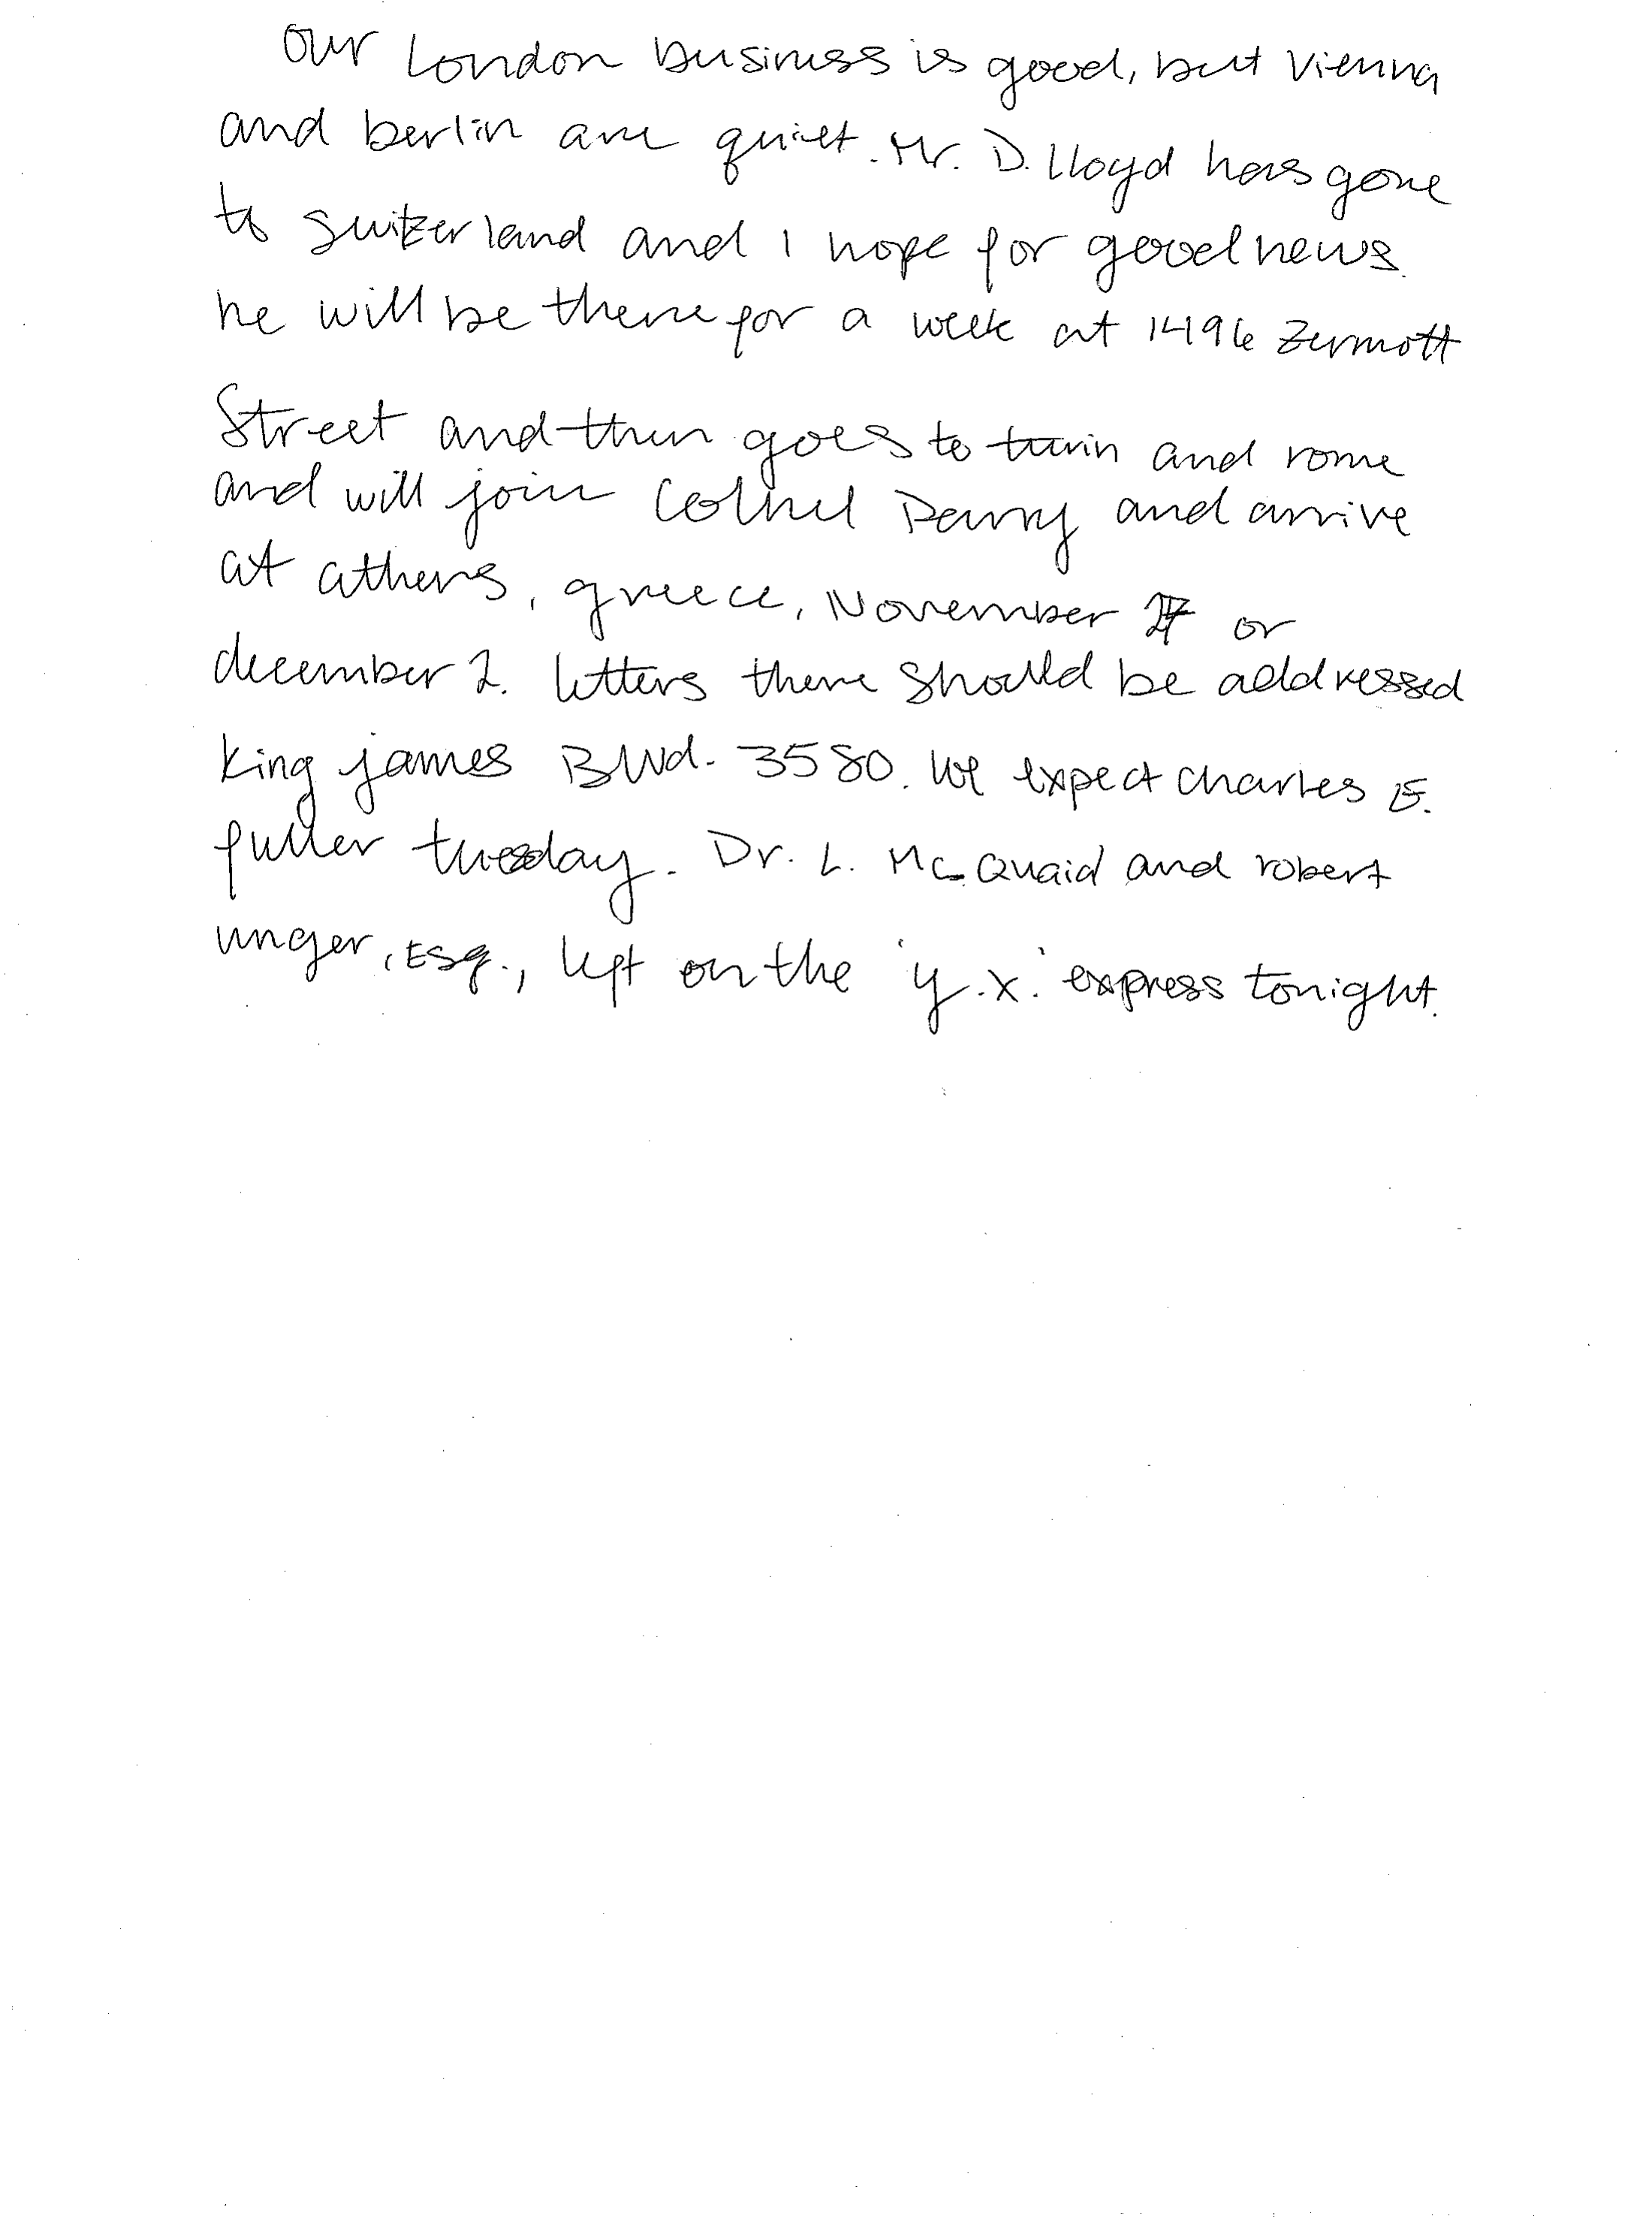 Our London business is good, but Vienna
and berlin are quiet. Mr. D. Lloyd has gone
to switzerland and I hope for good news.
he will be there for a week at 1496 Zermott
Street and then goes to turin and rome
and will join Colnel Parry and arrive
at athens, greece, November 27 or
december 2. letters there should be addressed
King james Blvd. 3580. We expect charles E.
fuller tuesday. Dr. L. McQuaid and robert
unger, Esq., left on the 'y.x.' express tonight.